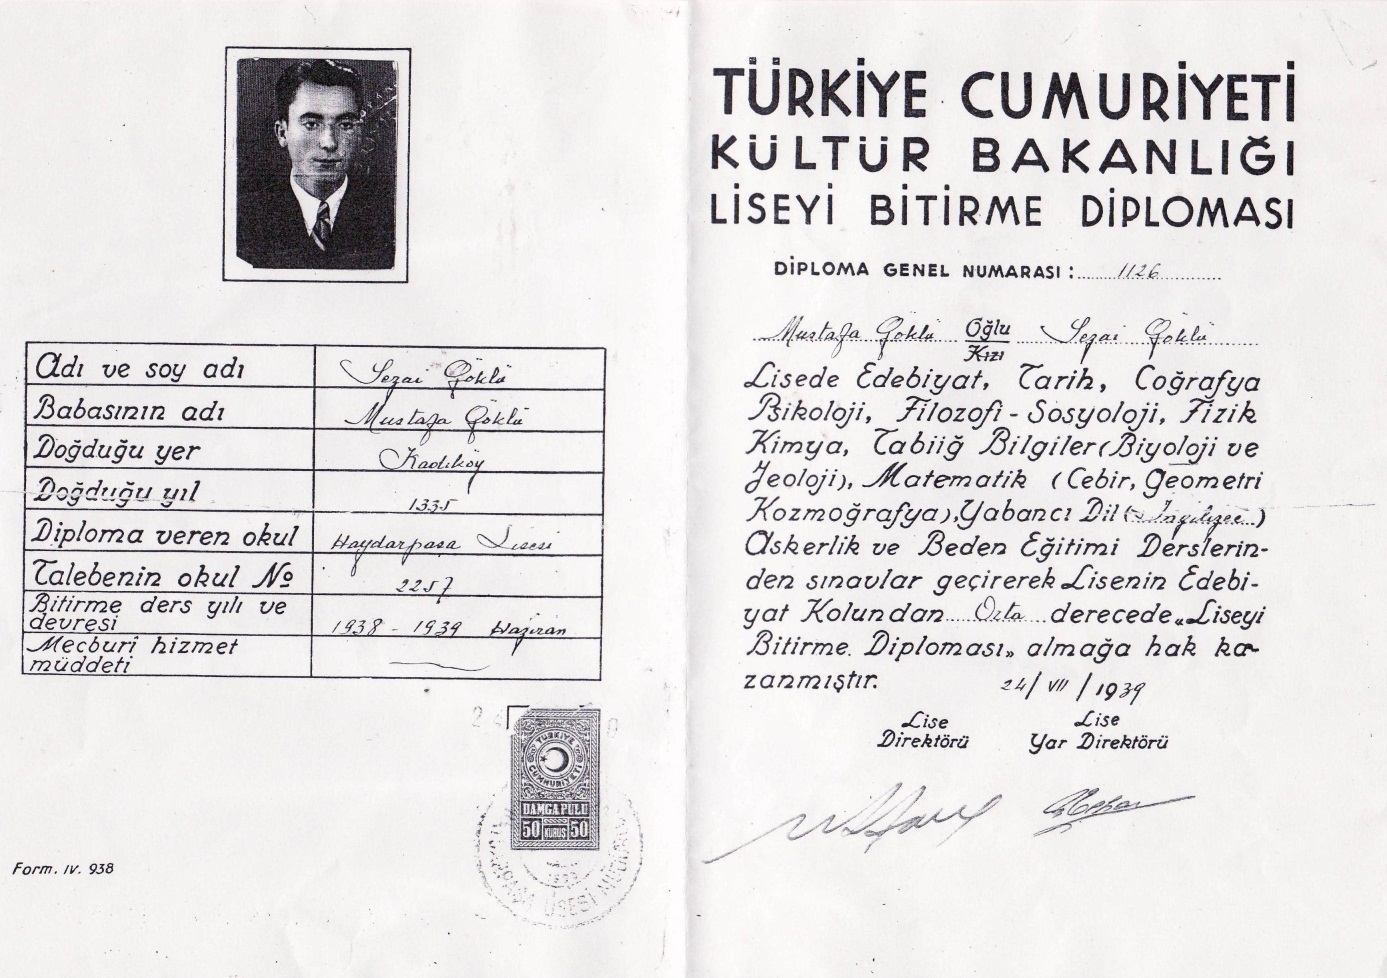 Adı ve soy adı Sezai Göklü
Babasının adı Mustafa Göklü
Doğduğu yer Kadıköy
Doğduğu yıl 1335
Diploma veren okul Haydarpaşa Lisesi
Talebenin okul No 2257
Bitirme ders yılı ve
devresi 1938 - 1939 Haziran
Mecburî hizmet
müddeti
TÜRKİYE
CUMHURİYETİ
DAMGA PULU
50 KURUŞ 50
LİSESİ
Form. IV. 938
TÜRKİYE CUMURİYETİ
KÜLTÜR BAKANLIĞI
LİSEYİ BİTİRME DİPLOMASI
DİPLOMA GENEL NUMARASI : 1126
Mustafa Göklü Oğlu Sezai Göklü
Kızı
Lisede Edebiyat, Tarih, Coğrafya
Psikoloji, Filozofi - Sosyoloji, Fizik
Kimya, Tabiiğ Bilgiler (Biyoloji ve
Jeoloji), Matematik (Cebir, Geometri
Kozmoğrafya), Yabancı Dil (İngilizce)
Askerlik ve Beden Eğitimi Derslerin-
den sınavlar geçirerek Lisenin Edebi-
yat Kolundan Orta derecede „Liseyi
Bitirme Diploması„ almağa hak ka-
zanmıştır. 24/VII/1939
Lise Lise
Direktörü Yar Direktörü